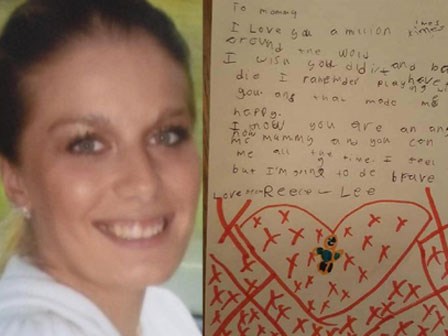 To mommy
I Love you a million times
around the Wold
I wish you and
die I ramember playing
you that made me
happy.
I now you are an an
now Mummy and you can
me all the time. I feel
but I'm going to be brave
Love Reece-Lee